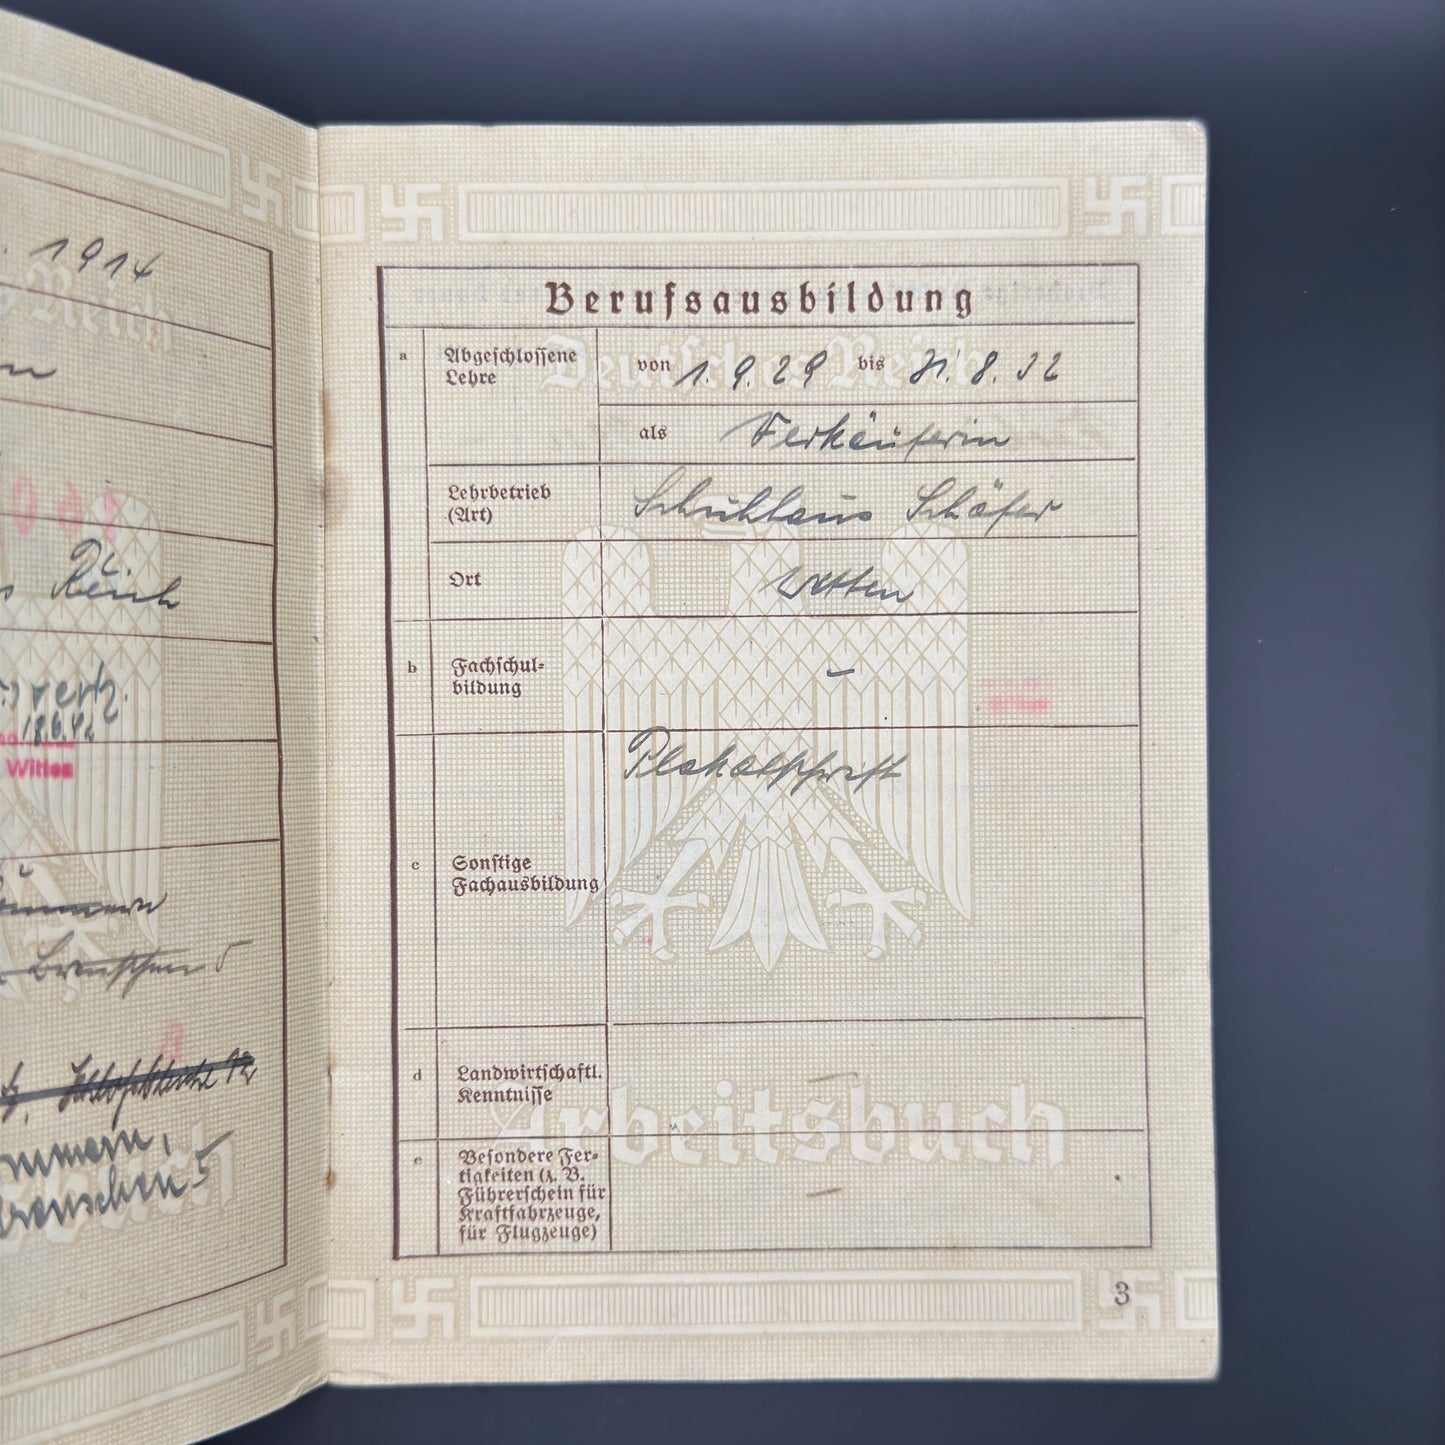 1914
Reich
18.6.42
Witten
Berufsausbildung
Deutsches Reich
a Abgeschlossene
Lehre
von 1.9.29 bis 31.8.32
als Verkäuferin
Lehrbetrieb
(Art)
Schuhhaus Schäfer
Ort Witten
b Fachschul-
bildung
–
Plakatschrift
c Sonstige
Fachausbildung
d Landwirtschaftl.
Kenntnisse
–
Arbeitsbuch
e Besondere Fer-
tigkeiten (z. B.
Führerschein für
Kraftfahrzeuge,
für Flugzeuge)
–
3